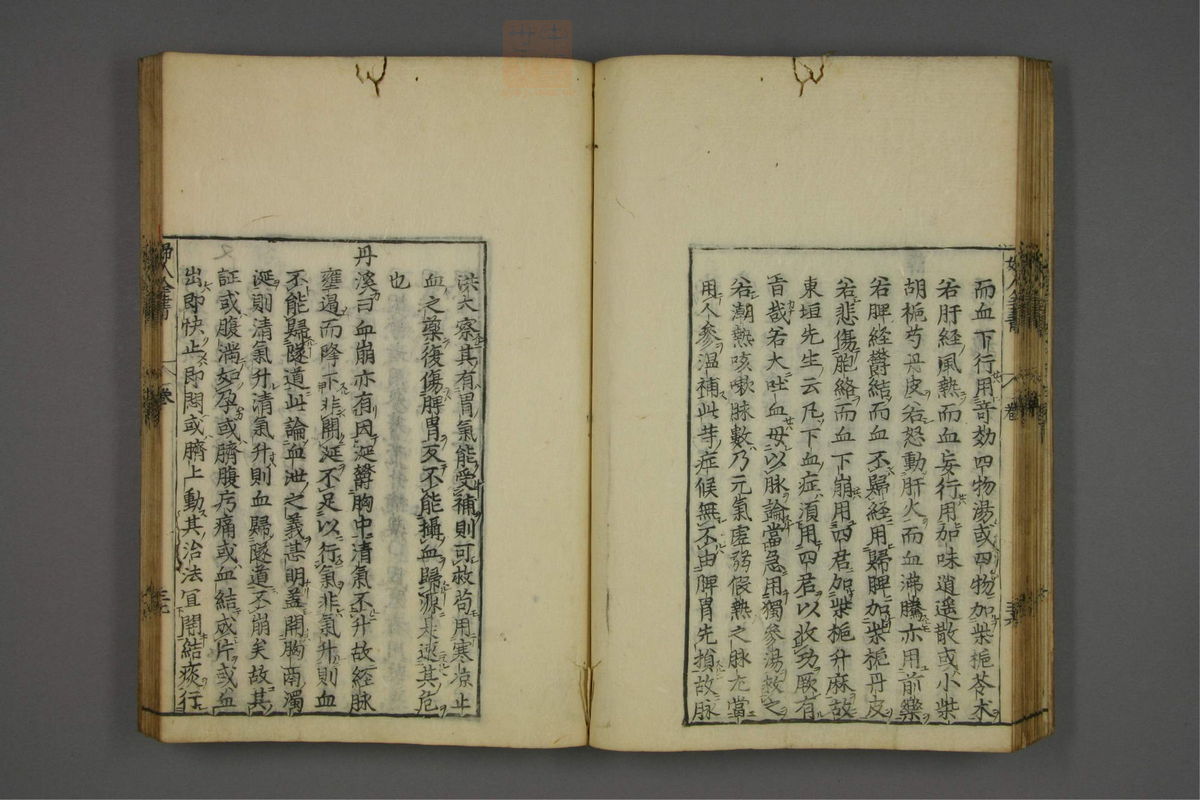 而血下行用奇効四物湯或四物加柴梔苓朮
若肝経風熱而血妄行用加味逍遥散或小柴
胡梔芍丹皮若怒動肝火而血沸騰亦用前藥
若脾經欝結而血不歸経用歸脾加柴梔丹皮
若悲傷胞絡而血下崩用四君加柴梔升麻故
東垣先生云凡下血症須用四君以收功厥有
旨哉若大吐血毋以脉論當急用獨參湯救之
若潮熱咳嗽脉數乃元氣虚弱假熱之脉尤當
用人參温補此等症候無不由脾胃先損故脉
洪大察其有胃氣能受補則可救苟用寒凉止
血之藥復傷脾胃反不能攝血歸源是速其危
也
丹溪曰血崩亦有因涎欝胸中清氣不升故経脉
壅遏而降下非開涎不足以行氣非氣升則血
不能歸隧道此論血泄之義甚明蓋開胸膈濁
涎則清氣升清氣升則血歸隧道不崩矣故其
証或腹満如孕或臍腹疞痛或血結成片或血
出即快止即悶或臍上動其治法宜開結痰行